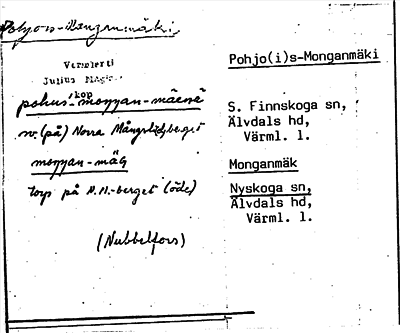 Pohjois-Monganmäki
Pohjo(i)s-Monganmäki
Julius Mägiste
kop
pohus-moŋŋan-mäene
S. Finnskoga sn,
nv. (på) Norra Mångslidberget
Älvdals hd,
Värml. l.
moŋŋan-mäG
Monganmäk
torp på N.M.-berget (öde)
Nyskoga sn,
Älvdals hd,
Värml. l.
(Nubbelfors)